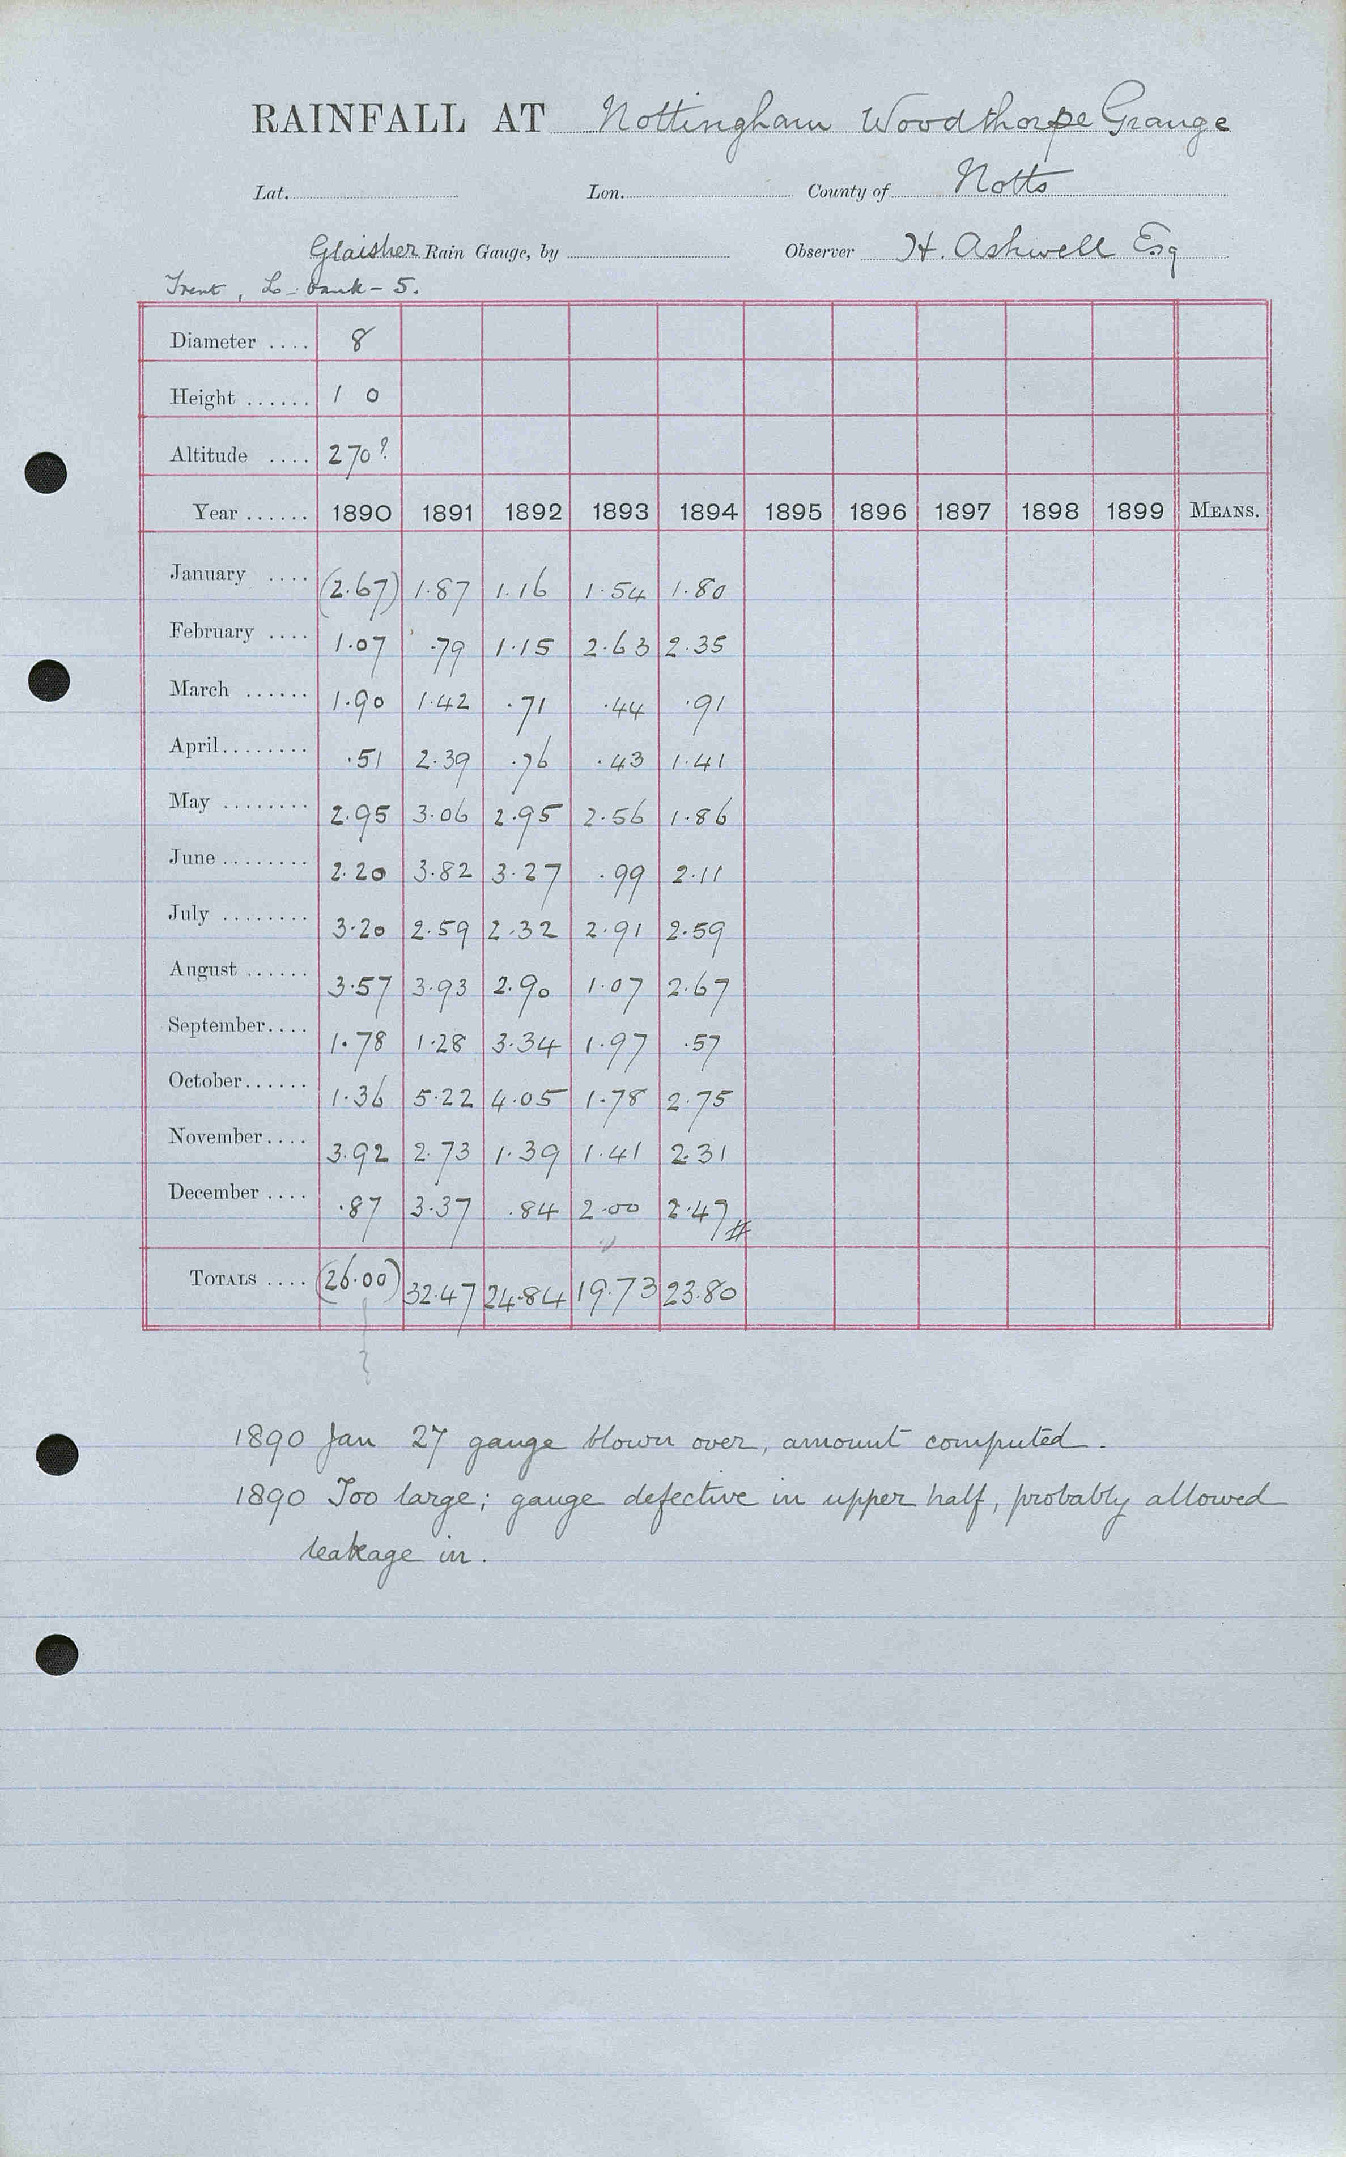 RAINFALL AT Nottingham Woodthorpe Grange
Lat. Lon. County of Notts
Glaisher Rain Gauge, by Observer H. Ashwell Esq
Trent, L. bank - 5.
Diameter .... 8
Height ...... 1 0
Altitude .... 270?
Year ...... 1890 1891 1892 1893 1894 1895 1896 1897 1898 1899 MEANS.
January .... (2.67) 1.87 1.16 1.54 1.80
February .... 1.07 .79 1.15 2.63 2.35
March ...... 1.90 1.42 .71 .44 .91
April........ .51 2.39 .76 .43 1.41
May ........ 2.95 3.06 2.95 2.56 1.86
June ........ 2.20 3.82 3.27 .99 2.11
July ........ 3.20 2.59 2.32 2.91 2.59
August ...... 3.57 3.93 2.90 1.07 2.67
September.... 1.78 1.28 3.34 1.97 .57
October...... 1.36 5.22 4.05 1.78 2.75
November.... 3.92 2.73 1.39 1.41 2.31
December .... .87 3.37 .84 2.00 2.47 #
TOTALS .... (26.00) 32.47 24.84 19.73 23.80
?
1890 Jan 27 gauge blown over, amount computed.
1890 Too large; gauge defective in upper half, probably allowed
leakage in.